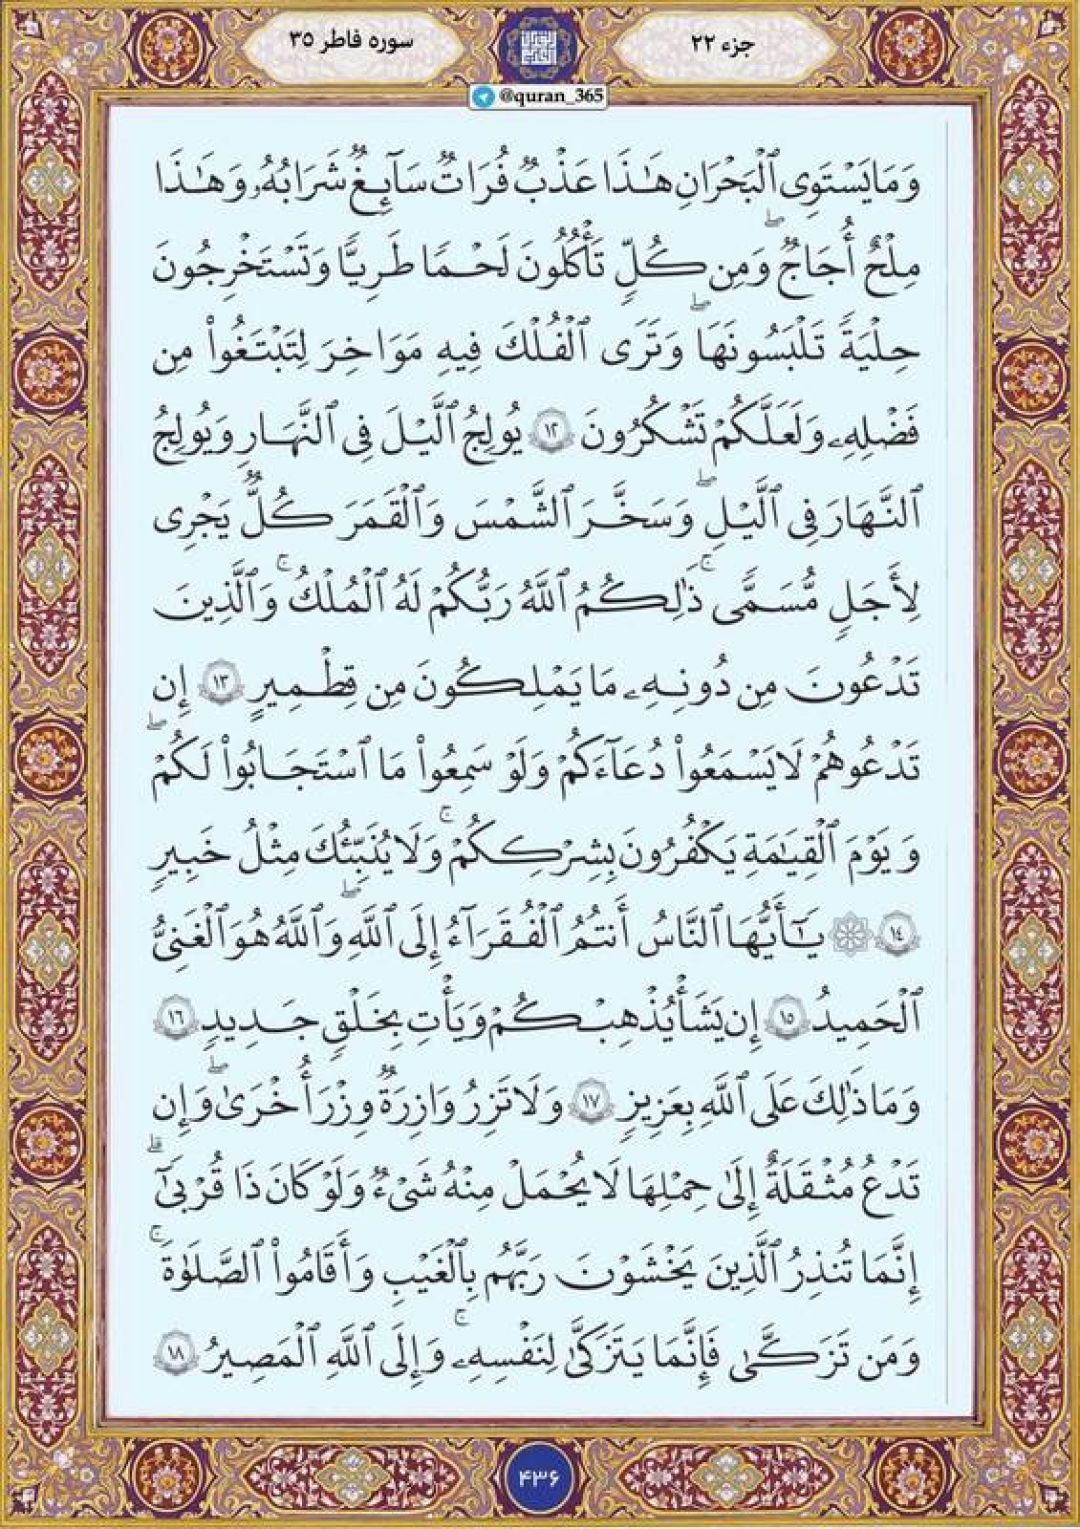 جزء ۲۲
سوره فاطر ۳۵
@quran_365
وَمَا يَسْتَوِى ٱلْبَحْرَانِ هَٰذَا عَذْبٌ فُرَاتٌ سَآئِغٌ شَرَابُهُۥ وَهَٰذَا
مِلْحٌ أُجَاجٌ ۖ وَمِن كُلٍّ تَأْكُلُونَ لَحْمًا طَرِيًّا وَتَسْتَخْرِجُونَ
حِلْيَةً تَلْبَسُونَهَا ۖ وَتَرَى ٱلْفُلْكَ فِيهِ مَوَاخِرَ لِتَبْتَغُوا۟ مِن
فَضْلِهِۦ وَلَعَلَّكُمْ تَشْكُرُونَ ١٢ يُولِجُ ٱلَّيْلَ فِى ٱلنَّهَارِ وَيُولِجُ
ٱلنَّهَارَ فِى ٱلَّيْلِ ۖ وَسَخَّرَ ٱلشَّمْسَ وَٱلْقَمَرَ كُلٌّ يَجْرِى
لِأَجَلٍ مُّسَمًّى ۚ ذَٰلِكُمُ ٱللَّهُ رَبُّكُمْ لَهُ ٱلْمُلْكُ ۚ وَٱلَّذِينَ
تَدْعُونَ مِن دُونِهِۦ مَا يَمْلِكُونَ مِن قِطْمِيرٍ ١٣ إِن
تَدْعُوهُمْ لَا يَسْمَعُوا۟ دُعَآءَكُمْ وَلَوْ سَمِعُوا۟ مَا ٱسْتَجَابُوا۟ لَكُمْ ۖ
وَيَوْمَ ٱلْقِيَٰمَةِ يَكْفُرُونَ بِشِرْكِكُمْ ۚ وَلَا يُنَبِّئُكَ مِثْلُ خَبِيرٍ
١٤ ۞ يَٰٓأَيُّهَا ٱلنَّاسُ أَنتُمُ ٱلْفُقَرَآءُ إِلَى ٱللَّهِ ۖ وَٱللَّهُ هُوَ ٱلْغَنِىُّ
ٱلْحَمِيدُ ١٥ إِن يَشَأْ يُذْهِبْكُمْ وَيَأْتِ بِخَلْقٍ جَدِيدٍ ١٦
وَمَا ذَٰلِكَ عَلَى ٱللَّهِ بِعَزِيزٍ ١٧ وَلَا تَزِرُ وَازِرَةٌ وِزْرَ أُخْرَىٰ ۖ وَإِن
تَدْعُ مُثْقَلَةٌ إِلَىٰ حِمْلِهَا لَا يُحْمَلْ مِنْهُ شَىْءٌ وَلَوْ كَانَ ذَا قُرْبَىٰٓ ۗ
إِنَّمَا تُنذِرُ ٱلَّذِينَ يَخْشَوْنَ رَبَّهُم بِٱلْغَيْبِ وَأَقَامُوا۟ ٱلصَّلَوٰةَ ۚ
وَمَن تَزَكَّىٰ فَإِنَّمَا يَتَزَكَّىٰ لِنَفْسِهِۦ ۚ وَإِلَى ٱللَّهِ ٱلْمَصِيرُ ١٨
۴۳۶